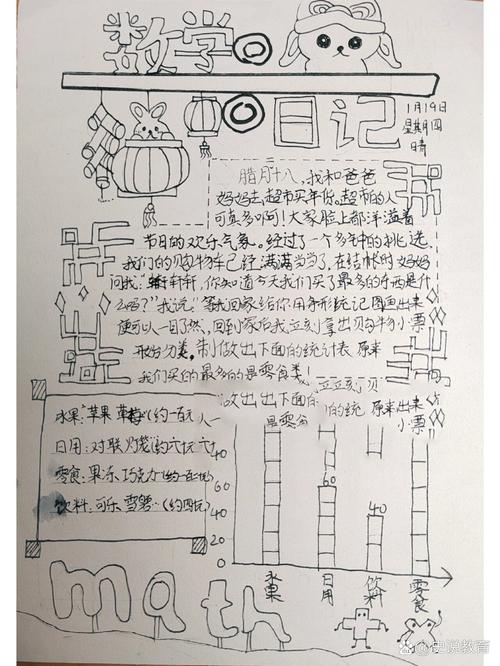 数学
日记
1月19日
星期四
晴
腊月十八，我和爸爸
妈妈去超市买年货。超市的人
可真多啊！大家脸上都洋溢着
节日的欢乐气象。经过了一个多钟的挑选，
我们的购物车已经满满当当了，在结帐时妈妈
问我："轩轩，你知道今天我们买了最多的东西是什
么吗？"我说："等我回家给你用条形统记图画出来
便可以一目了然，回到家后我立刻拿出购物小票
开始分类。制做出下面的统计表 原来
我们买的最多的是零食类！
立立刻
做出出下面的统 原来出来
是零食 小票
水果：苹果 草莓(约一百元
日用：对联 灯笼(约六元六
零食：果冻 巧克力(约一百元
饮料：可乐 雪碧(约四元)
60
40
20
0
60
40
水果
日用
饮料
零食
math
史说教育